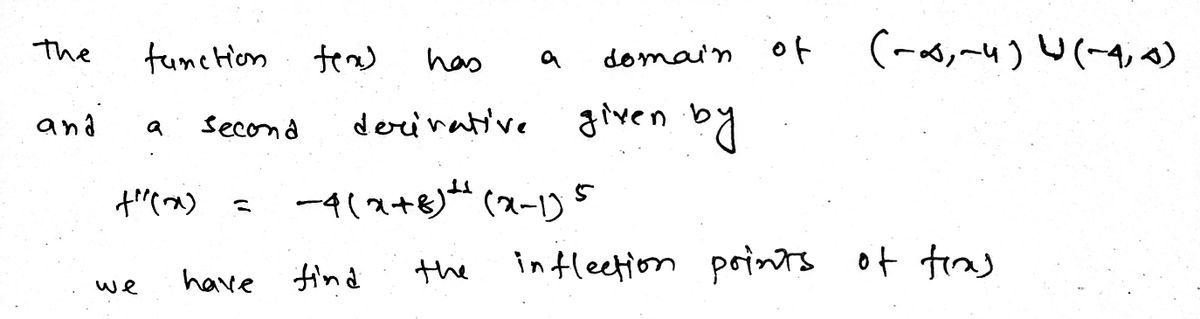 The function f(x) has a domain of (-∞,-4) ∪ (-4,∞)
and a second derivative given by
f''(x) = -4(x+8)¹¹ (x-1)⁵
we have find the inflection points of f(x)